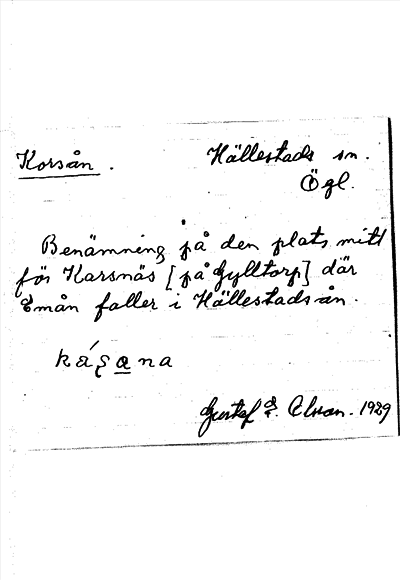 Korsån.
Hällestads sn.
Ögl.
Benämning på den plats mitt
för Karsnäs [på Gylltorp] där
Emån faller i Hällestadsån.
Gustaf
1929